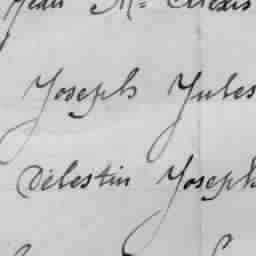 Jean M. Alexis
Joseph Jules
Célestin Joseph